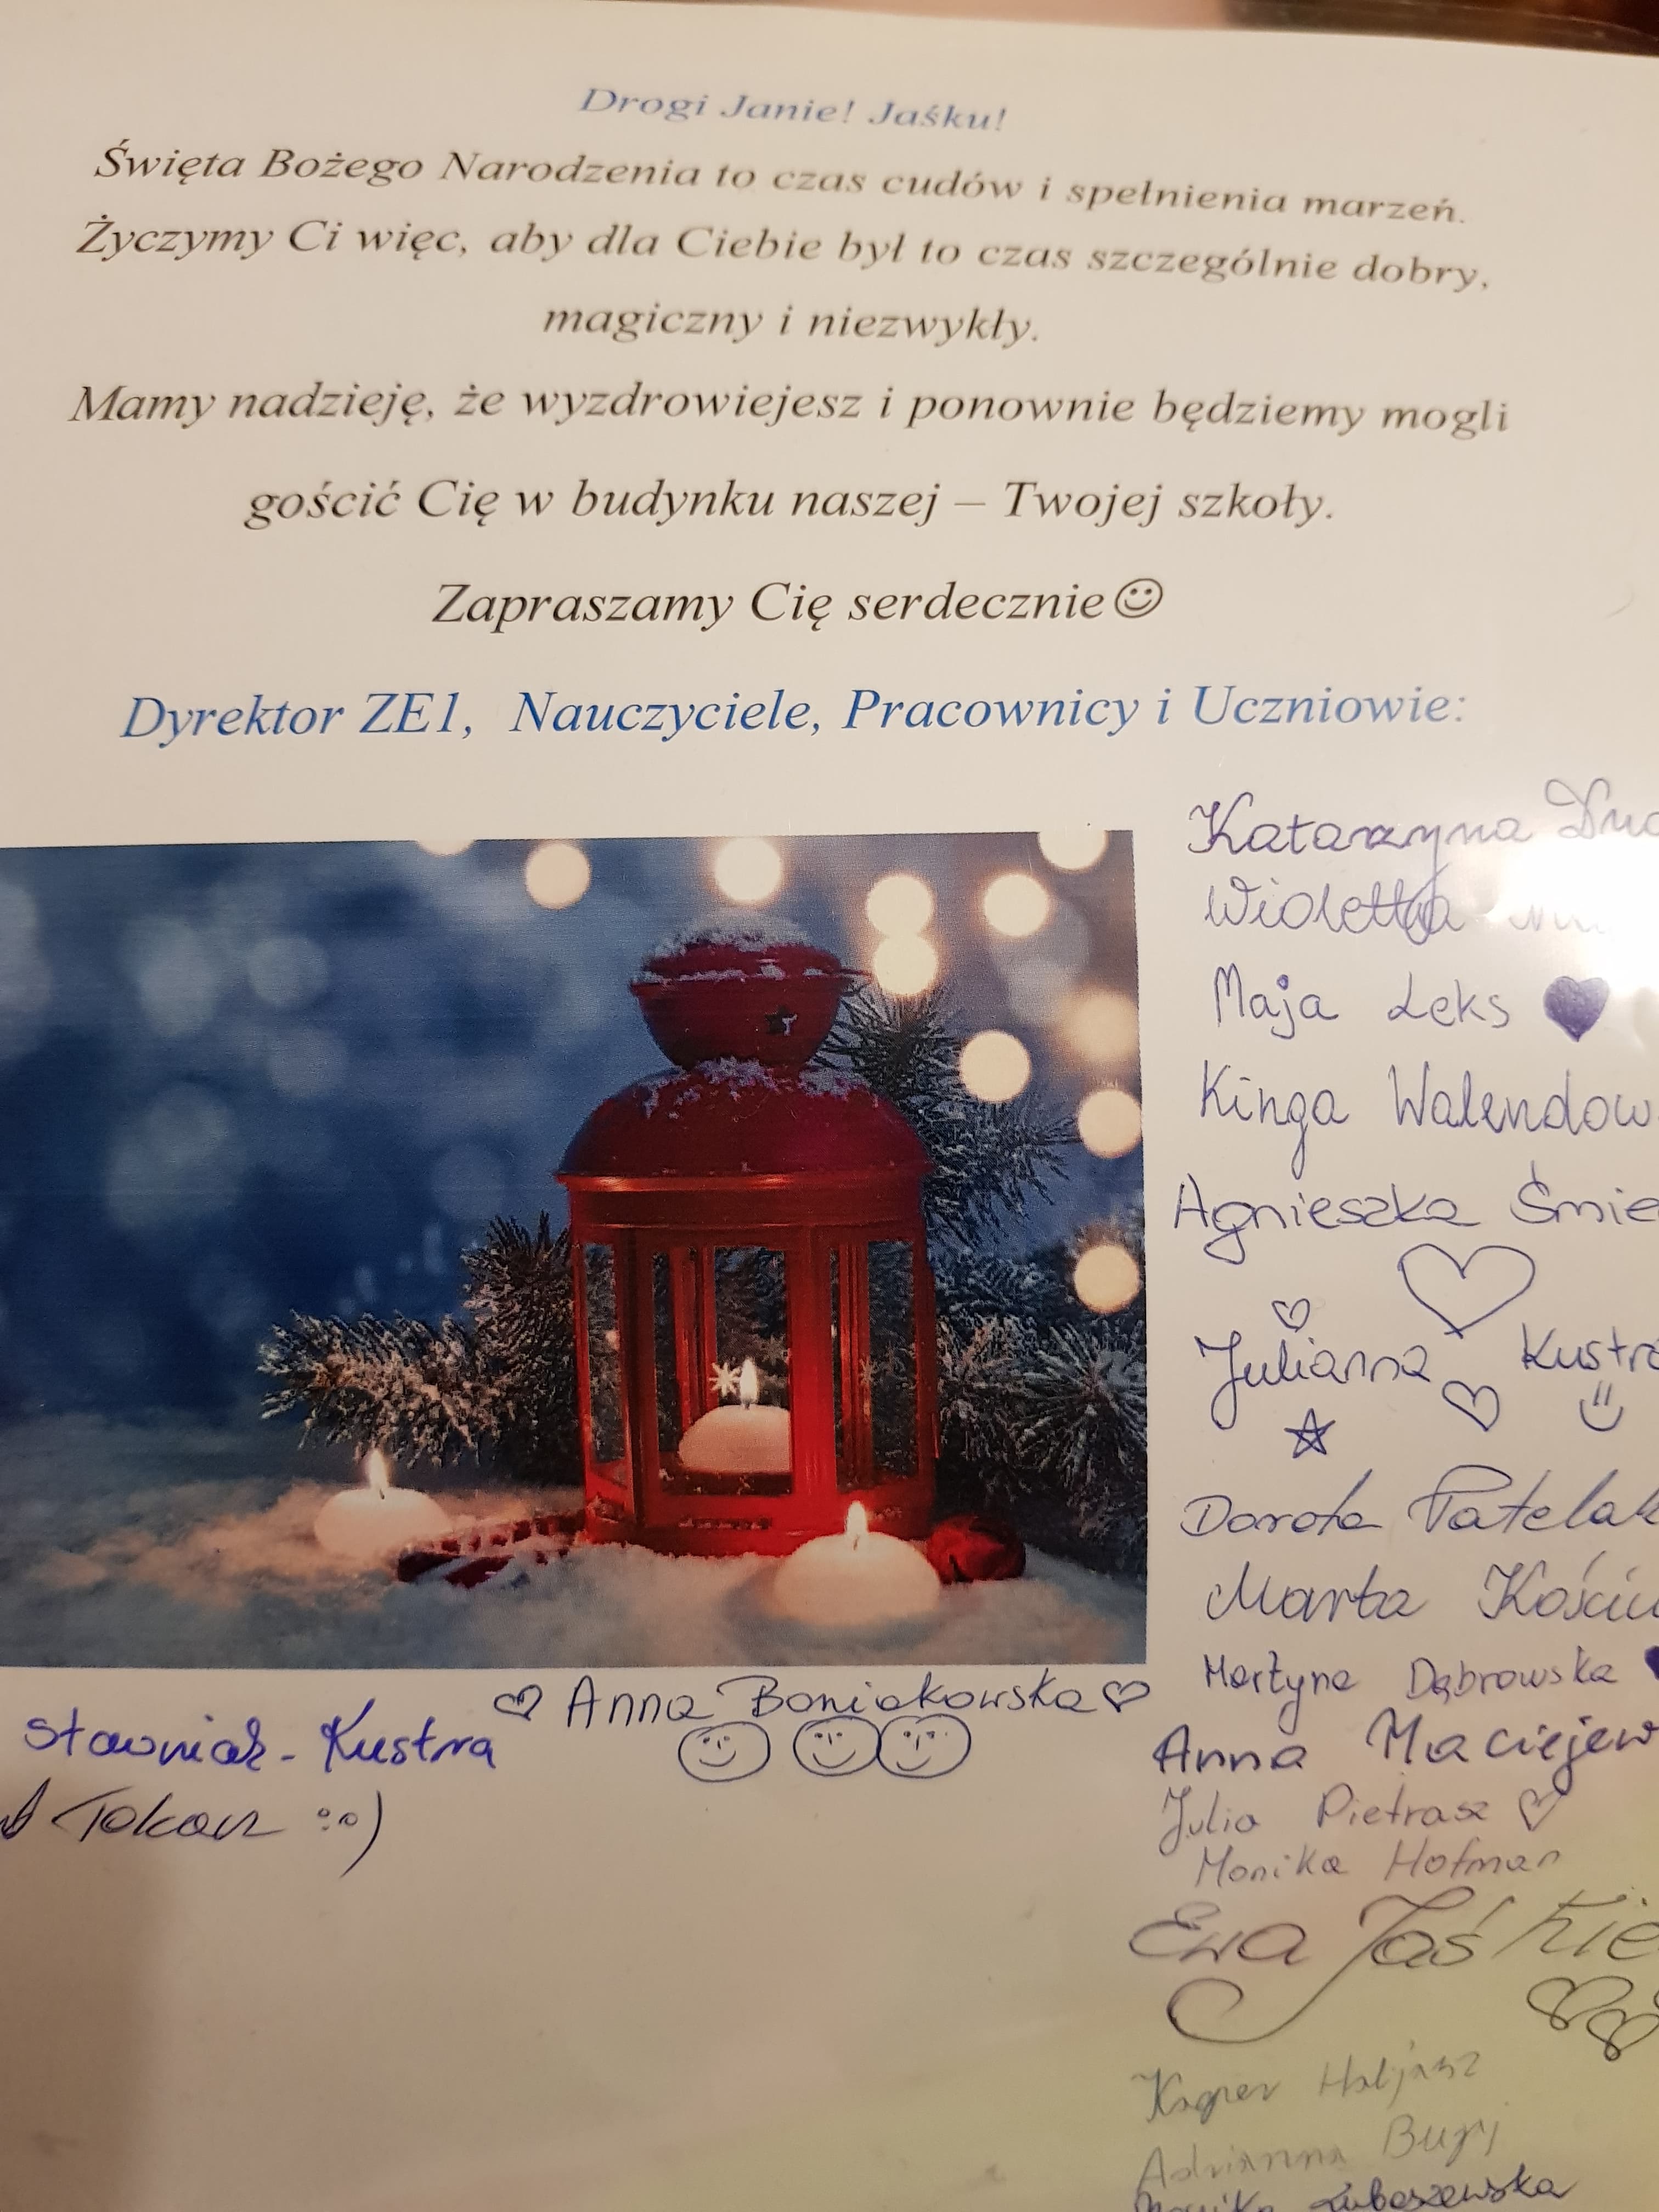 Drogi Janie! Jaśku!
Święta Bożego Narodzenia to czas cudów i spełnienia marzeń.
Życzymy Ci więc, aby dla Ciebie był to czas szczególnie dobry,
magiczny i niezwykły.
Mamy nadzieję, że wyzdrowiejesz i ponownie będziemy mogli
gościć Cię w budynku naszej – Twojej szkoły.
Zapraszamy Cię serdecznie☺
Dyrektor ZE1, Nauczyciele, Pracownicy i Uczniowie:
Katarzyna
Wioletta
Maja Leks
Kinga Walendow
Agnieszka Śmie
Julianna Kustr
Dorota Patelak
Marta
Martyna Dąbrowska
Anna Boniakowska
Stawniak-Kustra
Anna Maciejew
Tokarz :o)
Julia Pietrasz
Monika Hofman
Ewa Jaśkie
Kacper
Adrianna